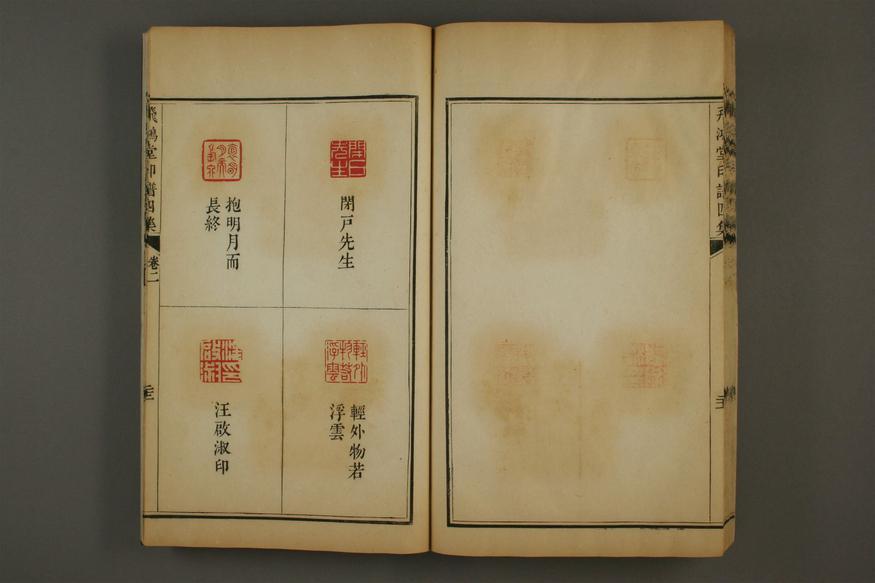 飛鴻堂印譜四集
閉戶先生
輕外物若
浮雲
抱明月而
長終
汪啟淑印
飛鴻堂印譜四集
卷二